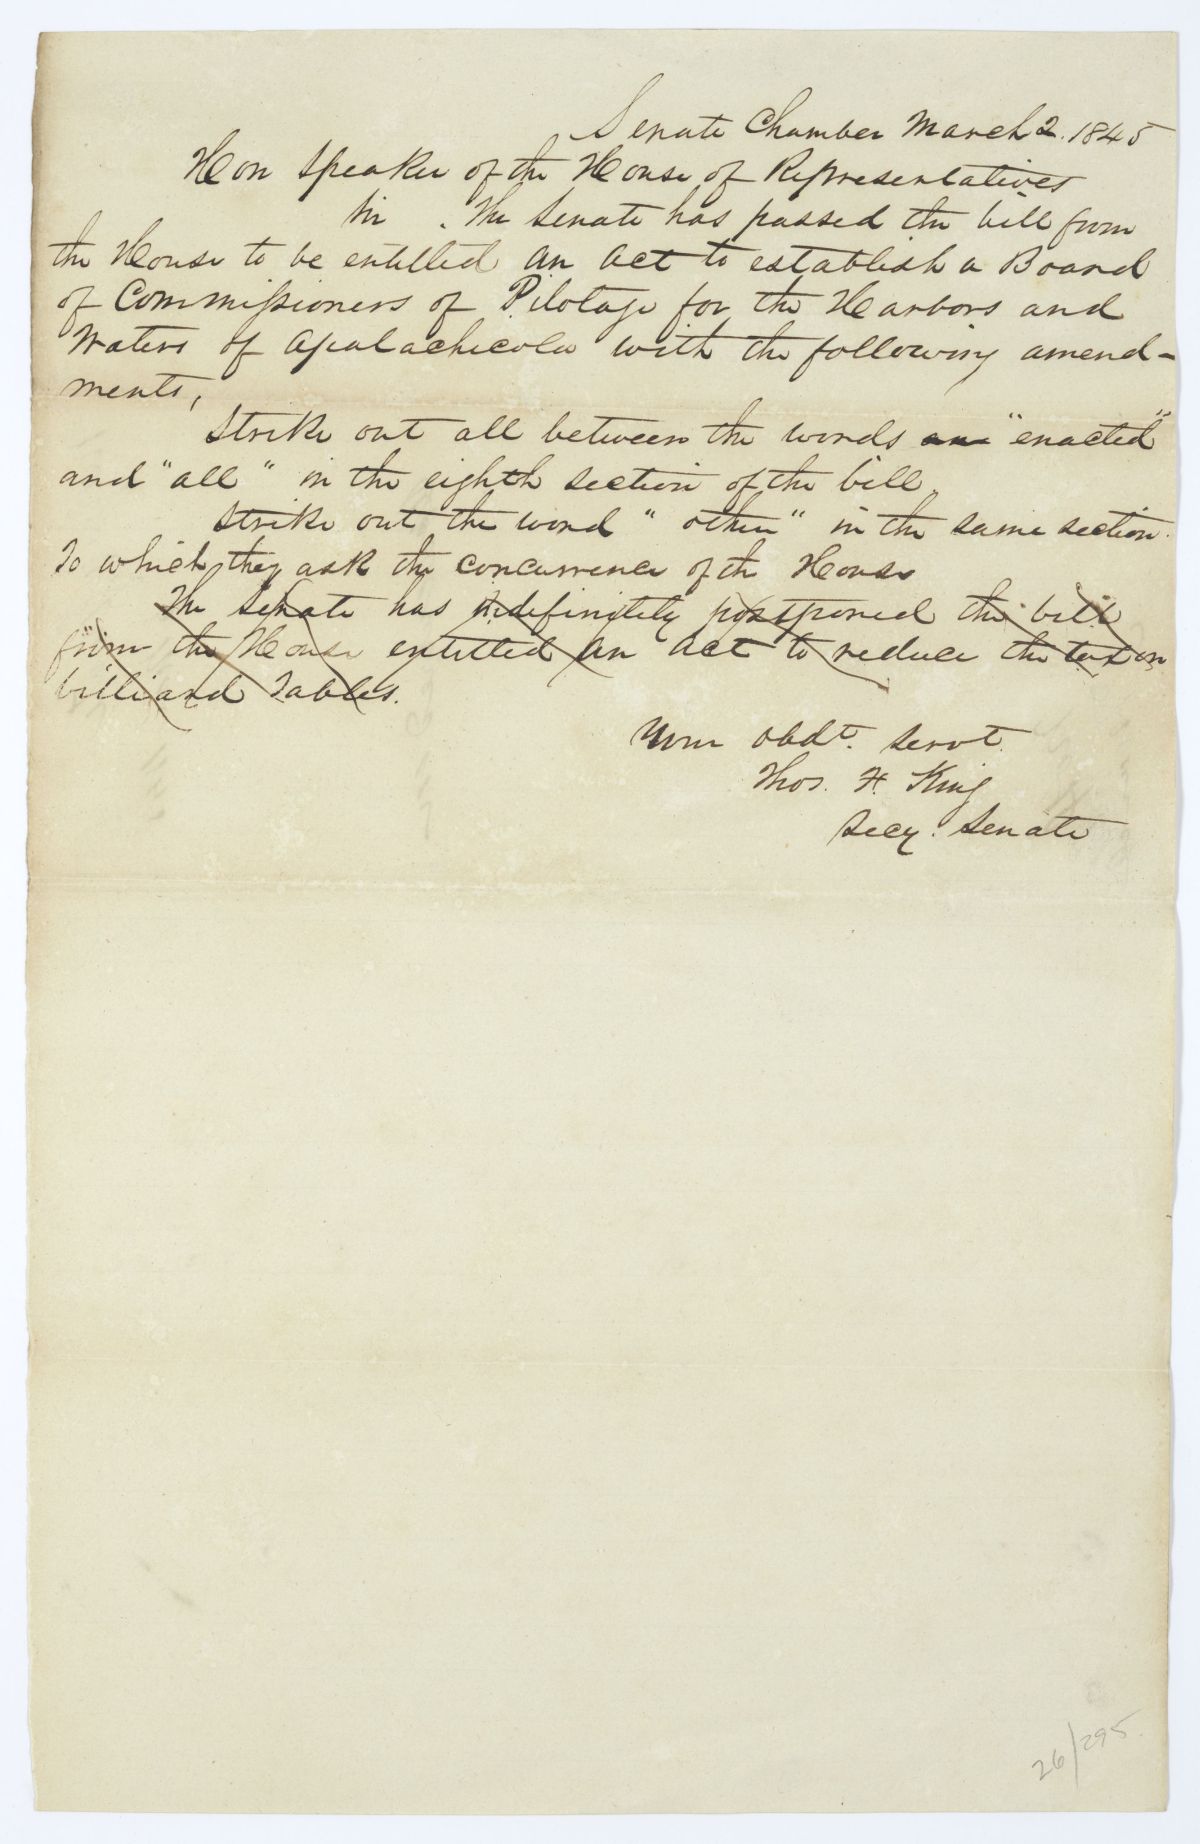 Senate Chamber March 2. 1845
Hon Speaker of the House of Representatives
Sir. The Senate has passed the bill from
the House to be entitled an act to establish a Board
of Commissioners of Pilotage for the Harbors and
Waters of Apalachicola with the following amend-
ments,
Strike out all between the words "enacted"
and "all" in the eighth section of the bill.
Strike out the word "other" in the same section.
To which they ask the concurrence of the House
The Senate has indefinitely postponed the bill
from the House entitled an act to reduce the tax on
billiard Tables.
Your obdt. servt.
Thos. F. King
Secy. Senate
26/295.